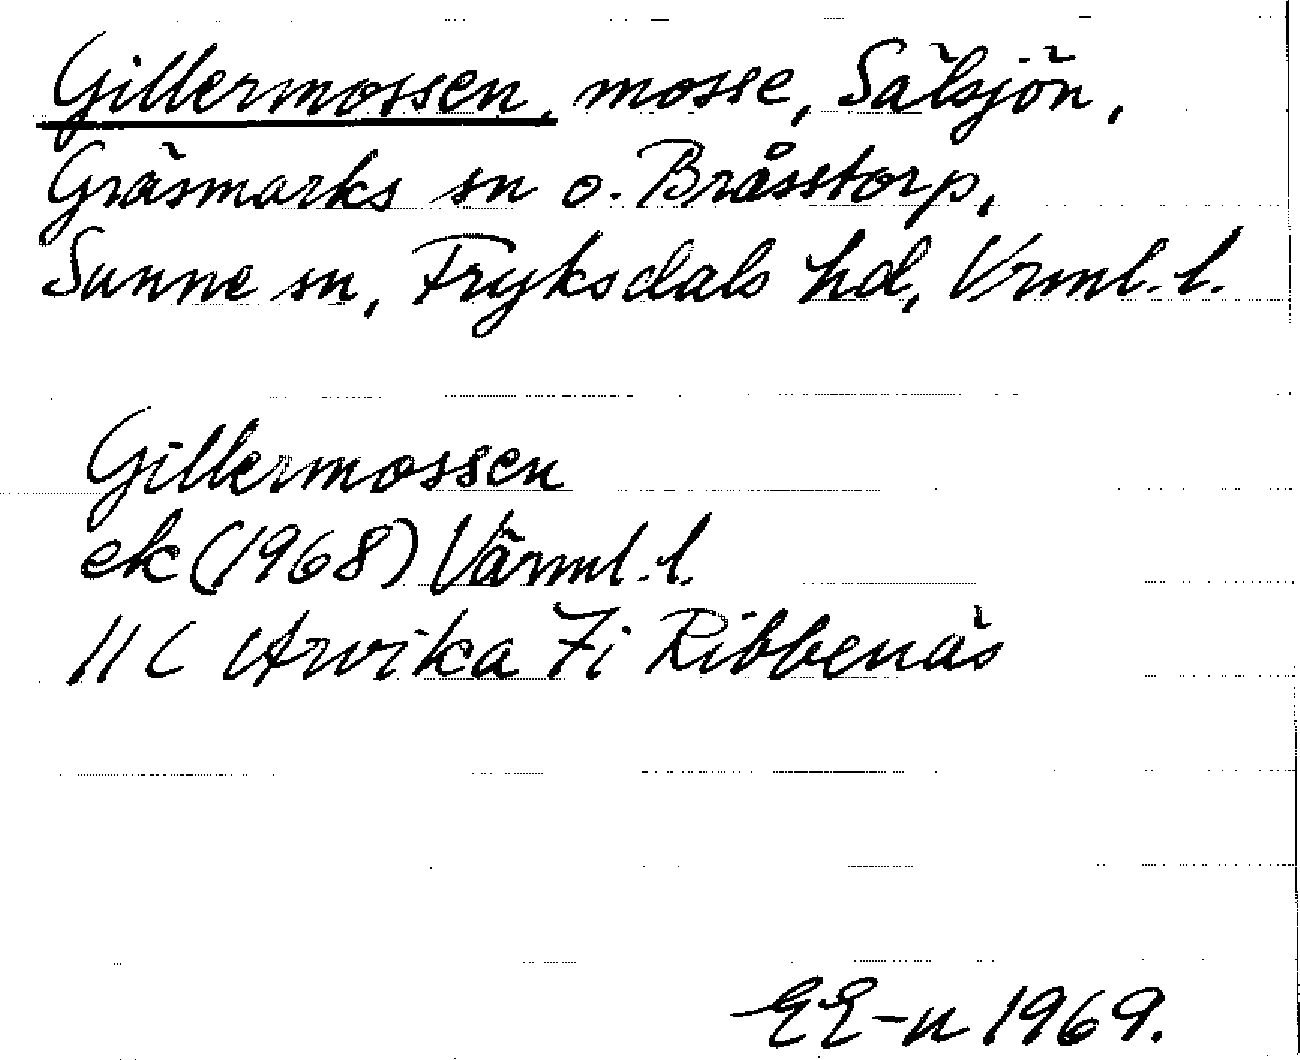 Gillermossen, mosse, Sälsjön,
Gräsmarks sn o. Bråsstorp,
Sunne sn, Fryksdals hd, Vrml. l.
Gillermossen
ek (1968) Värml. l.
11 C Arvika 7i Ribbenäs
EE-n 1969.